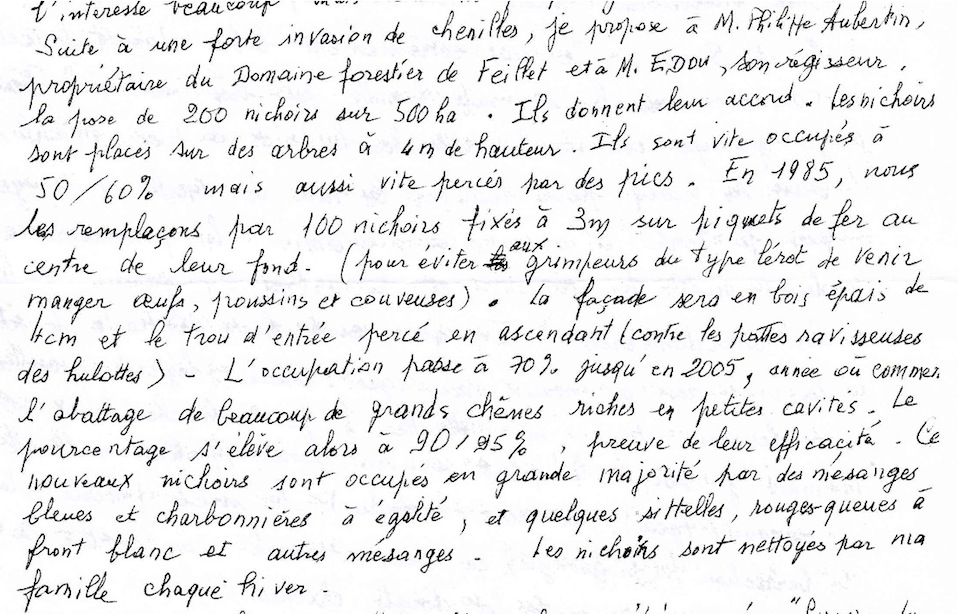 l'interesse beaucoup
Suite à une forte invasion de chenilles, je propose à M. Philippe Aubertin,
propriétaire du Domaine forestier de Feillet et à M. EDOU, son régisseur,
la pose de 200 nichoirs sur 500 ha. Ils donnent leur accord. Les nichoirs
sont placés sur des arbres à 4m de hauteur. Ils sont vite occupés à
50/60% mais aussi vite percés par des pics. En 1985, nous
les remplaçons par 100 nichoirs fixés à 3m sur piquets de fer au
centre de leur fond. (pour éviter aux grimpeurs du type lérot de venir
manger œufs, poussins et couveuses). La façade sera en bois épais de
4cm et le trou d'entrée percé en ascendant (contre les pattes ravisseuses
des hulottes) - L'occupation passe à 70% jusqu'en 2005, année où commen
l'abattage de beaucoup de grands chênes riches en petites cavités. Le
pourcentage s'élève alors à 90/95%, preuve de leur efficacité. Ce
nouveaux nichoirs sont occupés en grande majorité par des mésanges
bleues et charbonnières à égalité, et quelques sittelles, rouges-queues à
front blanc et autres mésanges - Les nichoirs sont nettoyés par ma
famille chaque hiver.